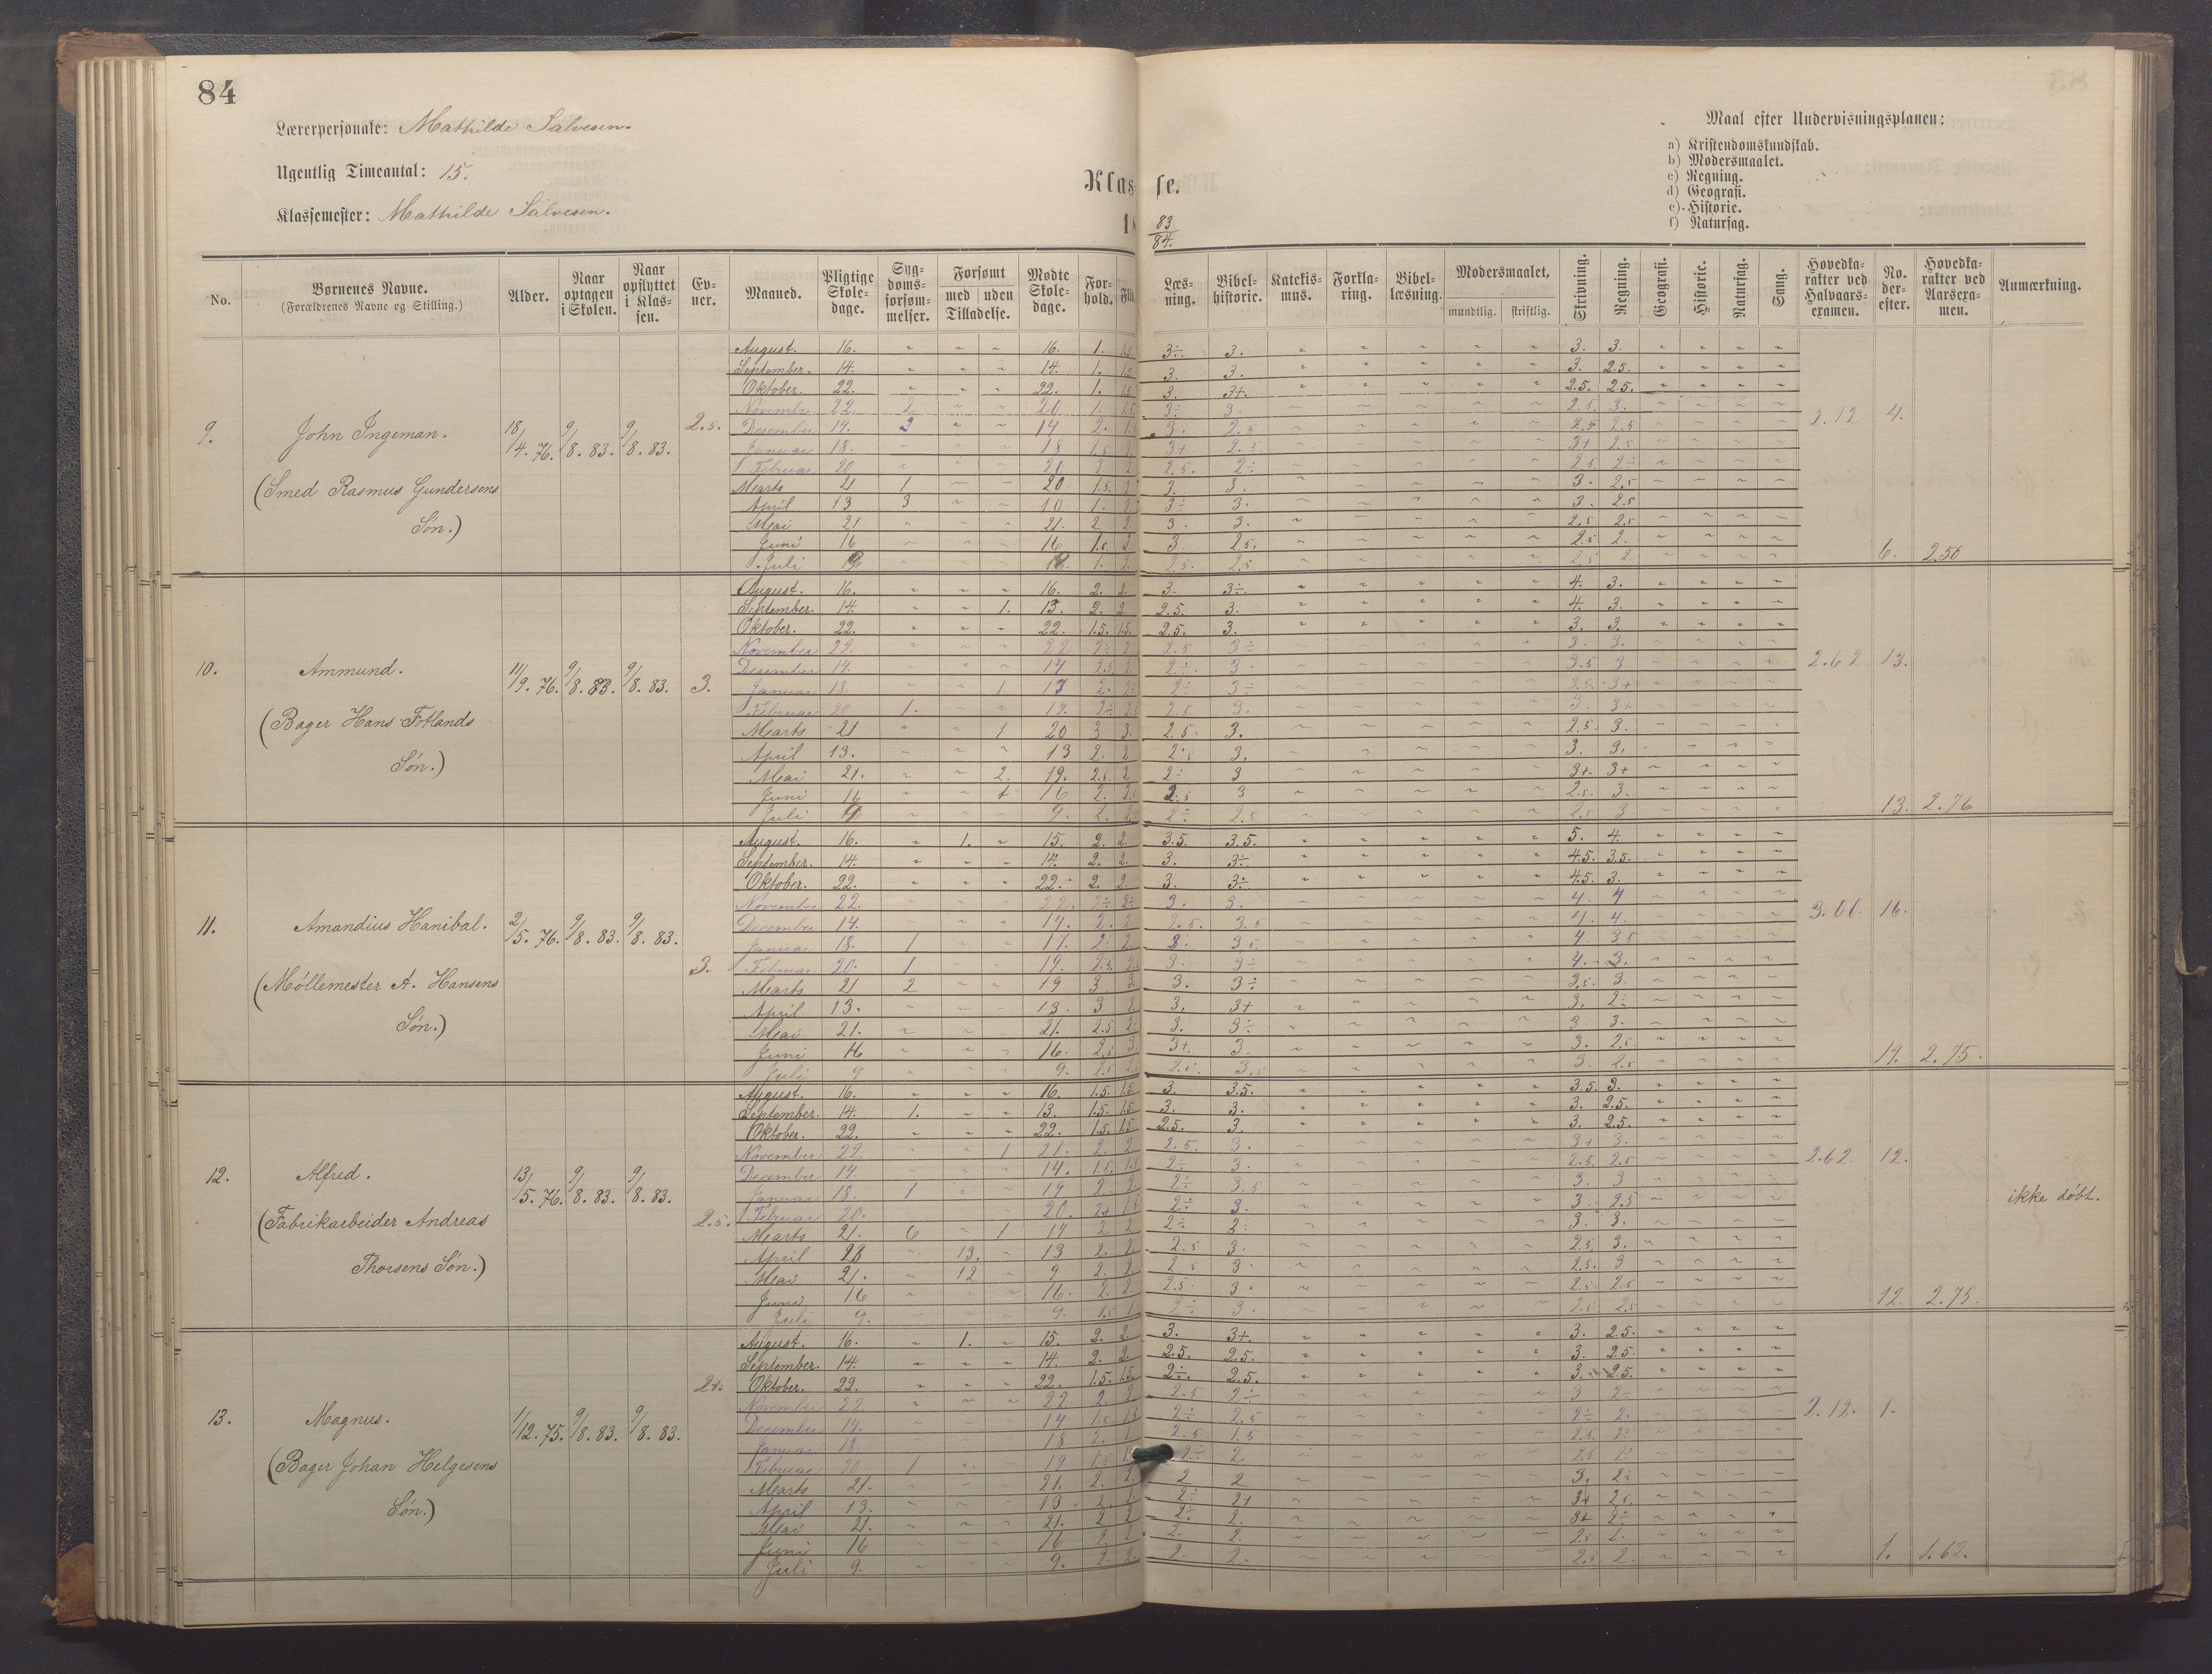 84
Lærerpersonale: Mathilde Salvesen.
Ugentlig Timeantal: 15.
Klassemester: Mathilde Salvesen.
Klasse.
18 83/84.
Maal efter Undervisningsplanen:
a) Kristendomskundskab.
b) Modersmaalet.
c) Regning.
d) Geografi.
e) Historie.
f) Naturfag.
No. | Børnenes Navne. (Forældrenes Navne og Stilling.) | Alder. | Naar optagen i Skolen. | Naar opflyttet i Klassen. | Evner. | Maaned. | Pligtige Skoledage. | Sygdomsforsømmelser. | Forsømt med / uden Tilladelse. | Mødte Skoledage. | Forhold. | Læsning. | Bibelhistorie. | Katekismus. | Forklaring. | Bibellæsning. | Modersmaalet, mundtlig. skriftlig. | Skrivning. | Regning. | Geografi. | Historie. | Naturfag. | Sang. | Hovedkarakter ved Halvaarsexamen. | No. derefter. | Hovedkarakter ved Aarsexamen. | Anmærkning.
9. John Ingeman. 18/4. 76. 9/8. 83. 9/8. 83. 2.5. 2.12 4.
(Smed Rasmus Gundersens
Søn.)
August. 16. 16. 1. 1.5 3÷. 3. 3. 3.
September. 14. 14. 1. 1.5 3. 3. 3. 2.5.
Oktober. 22. 22. 1. 1.5 3. 3+. 2.5. 2.5.
November 22. 2 20 1. 1.5 3÷ 3. 2.5. 3.
Desember 14. 14 2. 3. 2.5 2.5 2.5
Januar 18. 18 1.5 3+ 2.5 3+ 2.5
Februar 20 2.5. 2÷ 2.5 2÷
Marts 21 1 20 1.5. 2 3. 3. 3. 2.5
April 13 3 10 1. 2 3÷ 3. 3. 2.5
Mai 21 21. 2 2 3. 3. 2.5 2.5
Juni 16 16 1.5 2. 3 2.5. 2.5 2.
Juli 1. 2. 2.5. 2.5 2.5 2
6. 2.50
10. Ammund. 11/19. 76. 9/8. 83. 9/8. 83. 3. 2.62 13.
(Bager Hans Fotlands
Søn.)
August. 16. 16. 2. 2. 3. 3÷. 4. 3.
September. 14. 1. 13. 2. 2 2.5. 3. 4. 3.
Oktober. 22. 22. 1.5. 1.5. 2.5. 3. 3. 3.
November 22. 22 2÷ 2 2.5 3÷ 3. 3.
Desember 14. 14 2.5 2. 2÷ 3. 3.5 3
Januar 18. 1 17 2. 2÷ 2÷ 3÷ 3.5. 3+
Februar 20 1. 19. 2÷ 2.5 3. 3. 3+
Marts 21 1 20 3 3. 2.5. 3. 2.5 3.
April 13. 13 2. 2 2.5 3. 3. 3.
Mai 21. 2. 19. 2.5. 2 2÷ 3 3+. 3+
Juni 16 16 2. 2.5 2.5 3 2.5. 3.
Juli 9 9. 2. 2÷ 2.5 2.5 3
13. 2.76
11. Amandius Hanibal. 2/5. 76. 9/8. 83. 9/8. 83. 3. 16.
(Møllemester A. Hansens
Søn.)
August. 16. 1. 15. 2. 2. 3.5. 3.5. 5. 4.
September. 14. 14. 2. 2. 3. 3÷. 4.5. 3.5.
Oktober. 22. 22. 2. 2. 3. 3÷ 4.5. 3.
November 22. 22. 2÷ 2÷ 3. 3. 4. 4
December 14. 14. 2. 2 2.5. 3.5 4. 4.
Januar 18. 1 17. 2. 2 3÷ 3.5. 4. 3.5
Februar 20. 1 19. 2.5 3. 3÷ 4. 3.
Marts 21 2 19 3 3 3. 3÷ 3.5. 3.
April 13. 13. 3 2 3. 3+ 3. 2÷
Mai 21. 21. 2.5 2÷ 3. 3÷ 3 3.
Juni 16 16. 2.5 3. 3+. 3. 3. 2.5
Juli 9 9. 2.5 2.5. 3.5 3. 2.5
14. 2.75.
12. Alfred. 13/5. 76. 9/8. 83. 9/8. 83. 2.5. 2.62. 12. ikke døbt.
(Fabrikarbeider Andreas
Thorsens Søn.)
August. 16. 16. 1.5. 1.5. 3. 3.5. 3.5. 3.
September. 14. 1. 13. 1.5. 1.5 3. 3. 3. 2.5.
Oktober. 22. 22. 1.5. 1.5. 2.5. 3. 3. 2.5.
November 22. 1 21. 2. 2 2.5. 3. 3+ 3.
December 14 14. 1.5. 1.5 2÷ 3. 2.5. 2.5
Januar 18. 1 2. 2. 2÷ 3.5 3. 3
Februar 20. 20. 2÷ 3. 3 2.5
Marts 21. 6 1 14 2 2 2÷ 2÷ 3. 3.
April 13. 13 2. 2 2.5 3. 2.5 3.
Mai 21. 12 9 2. 2 2.5 3. 2.5. 3
Juni 16 16. 2. 2 2.5. 3. 2.5. 2.5
Juli 9. 9. 1.5 2÷ 3. 2.5 2.5
12. 2.75.
13. Magnus. 1/12. 75. 9/8. 83. 9/8. 83. 2+. 2.12. 1.
(Bager Johan Helgesens
Søn.)
August. 16. 1. 15. 2. 2. 3. 3+. 3. 2.5.
September. 14. 14. 2. 2. 2.5. 2.5. 3. 2.5.
Oktober. 22. 22. 1.5. 1.5. 2÷. 2.5. 3. 2.5.
November 22 22 2. 2. 2.5 2÷ 3 2
December 14. 14 1.5 2÷ 2.5 2÷ 2.
Januar 18 18 2. 2.5. 1.5 2.5. 2÷
Februar 20 1 19 1.5 2÷ 2 2.5 2÷
Marts 21. 21. 2. 2. 2 2 3. 2÷
April 13. 13. 2. 2÷ 2+ 3+ 2.5
Mai 21. 21. 2 2 2÷ 2. 3+ 2÷
Juni 16 16 2 2 2. 2 2.5. 2.
Juli 9. 9. 2. 2. 2. 2. 2.5 2.
1. 1.62.